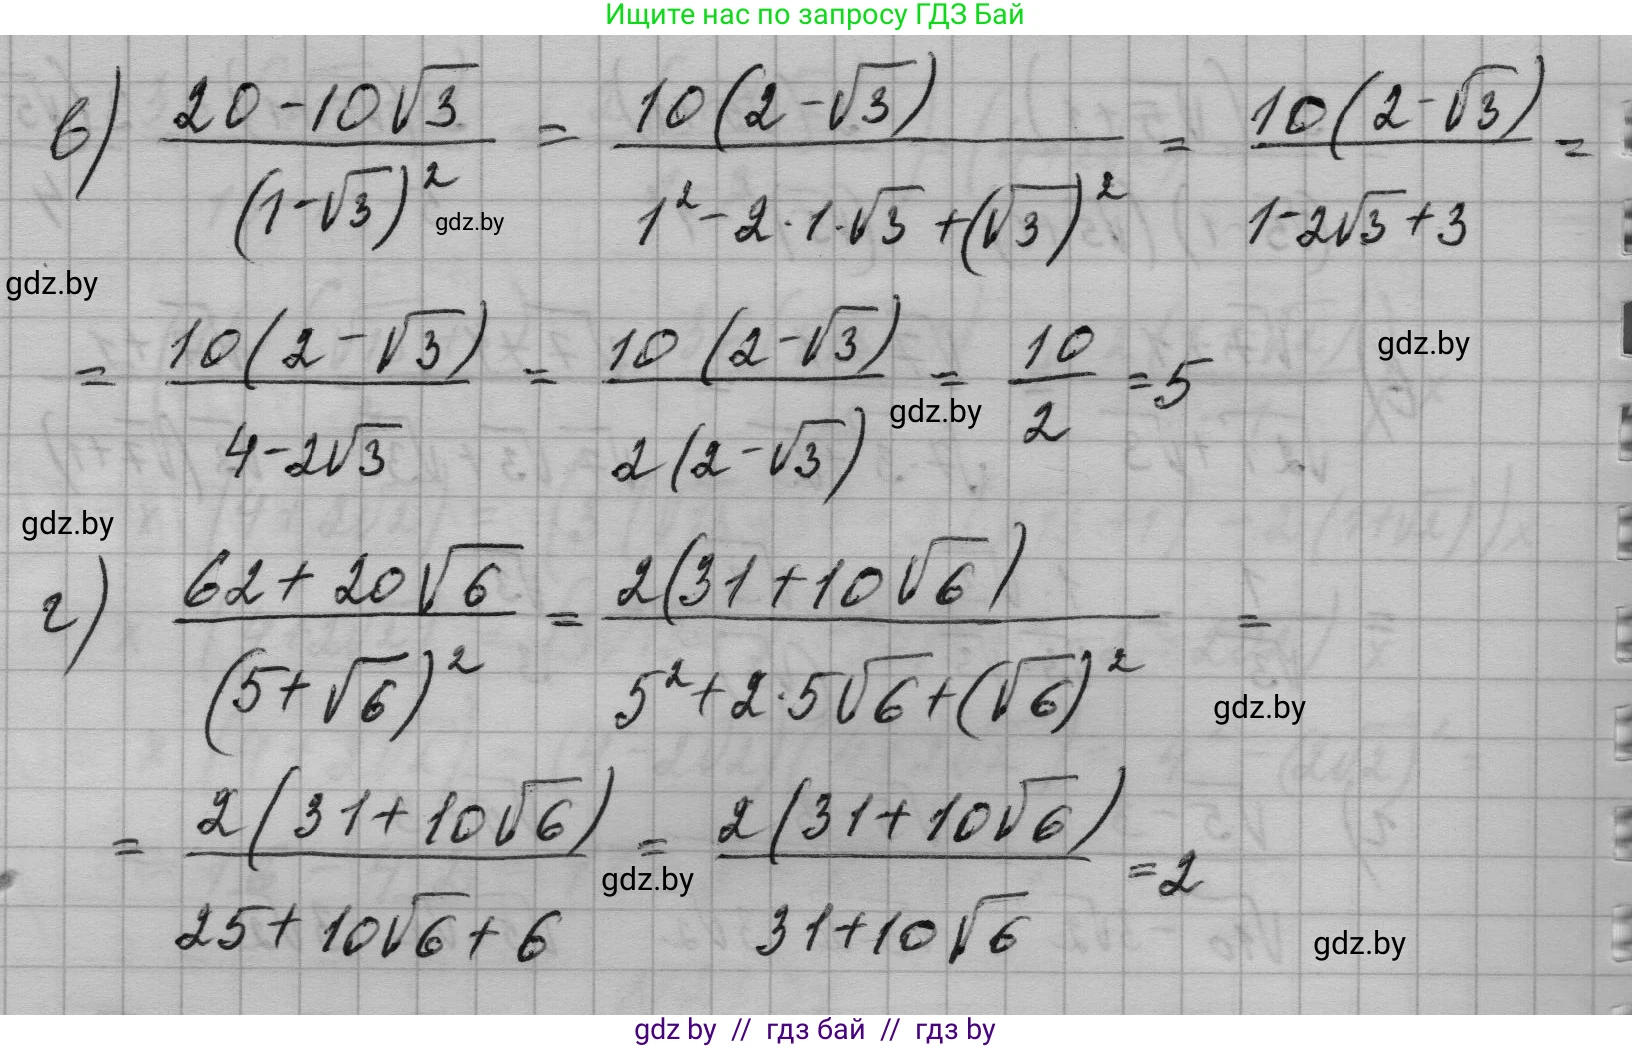 Ищите нас по запросу ГДЗ Бай
в) (20-10√3)/(1-√3)² = 10(2-√3)/(1²-2·1·√3+(√3)²) = 10(2-√3)/(1-2√3+3) =
gdz.by
gdz.by
= 10(2-√3)/(4-2√3) = 10(2-√3)/(2(2-√3)) = 10/2 = 5
gdz.by
gdz.by
gdz.by
г) (62+20√6)/(5+√6)² = 2(31+10√6)/(5²+2·5√6+(√6)²) =
gdz.by
= 2(31+10√6)/(25+10√6+6) = 2(31+10√6)/(31+10√6) = 2
gdz.by
gdz.by
gdz by // гдз бай // гдз by